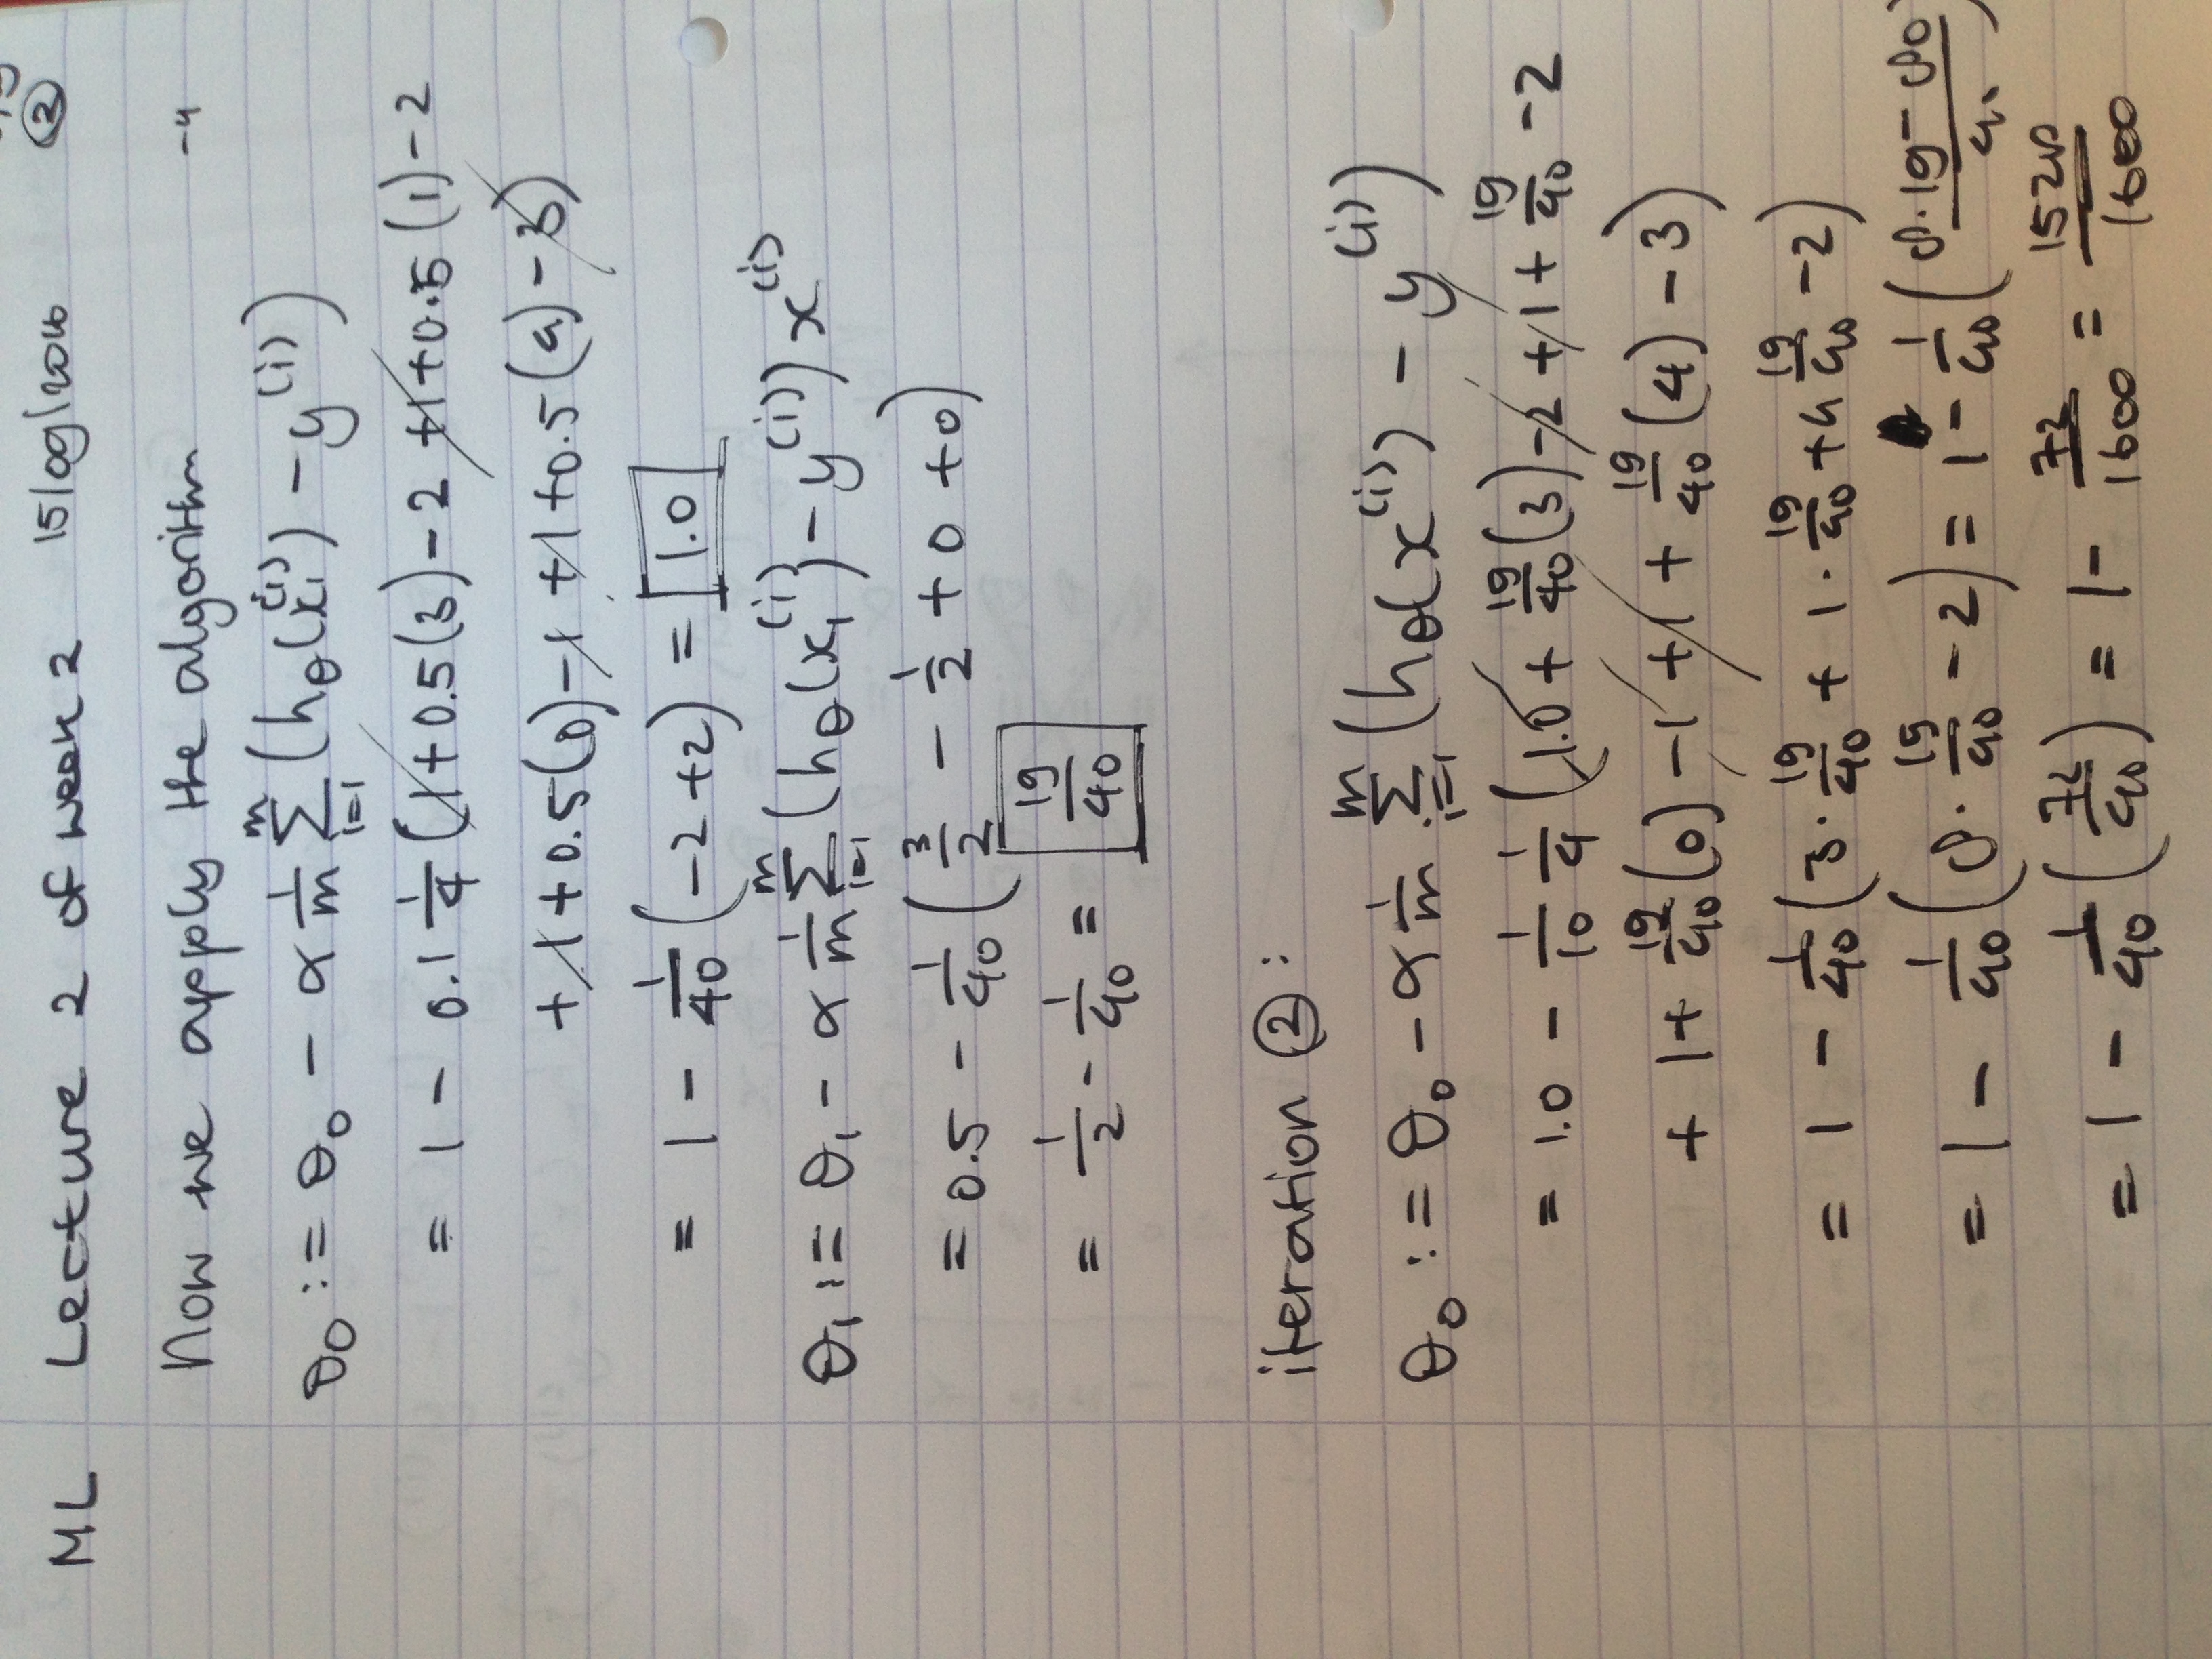 ML Lecture 2 of week 2 15/09/2016 ②
Now we apply the algorithm -4
θ₀ := θ₀ - α 1/m Σ_{i=1}^{m} (h_θ(x₁^{(i)}) - y^{(i)})
= 1 - 0.1 1/4 (1+0.5(3)-2 +1+0.5(1)-2
+1+0.5(0)-1 +1+0.5(4)-3)
= 1 - 1/40 (-2+2) = 1.0
θ₁ := θ₁ - α 1/m Σ_{i=1}^{m} (h_θ(x₁^{(i)}) - y^{(i)}) x^{(i)}
= 0.5 - 1/40 (3/2 - 1/2 + 0 + 0)
= 1/2 - 1/40 = 19/40
iteration ②:
θ₀ := θ₀ - α 1/m Σ_{i=1}^{m} (h_θ(x^{(i)}) - y^{(i)})
= 1.0 - 1/10 1/4 (1.0 + 19/40 (3) - 2 + 1 + 19/40 - 2
+ 1 + 19/40 (0) - 1 + 1 + 19/40 (4) - 3)
= 1 - 1/40 (3·19/40 + 1·19/40 + 4 19/40 - 2)
= 1 - 1/40 (8·19/40 - 2) = 1 - 1/40 (8·19-80/40)
= 1 - 1/40 (72/40) = 1 - 72/1600 = 1528/1600